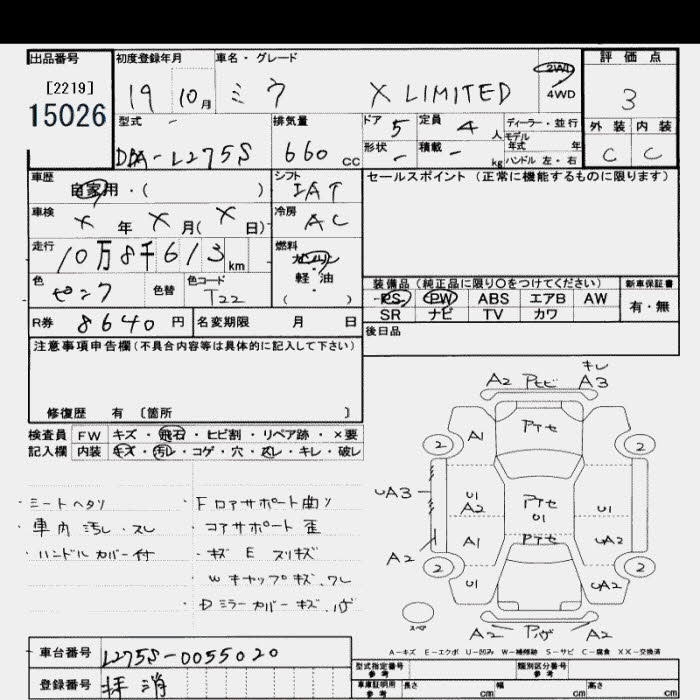 出品番号 初度登録年月 車名・グレード 2WD 評価点
[2219] 19 10月 ミラ X LIMITED 4WD 3
15026 型式 - 排気量 ドア 5 定員 4人 ディーラー・並行 外装 内装
モデル
DBA-L275S 660cc 形状 - 積載 - kg 年式 年 C C
ハンドル 左・右
車歴 シフト セールスポイント (正常に機能するものに限ります)
自家用・( ) IAT
車検 X年 X月( X日) 冷房 AC
走行 10万8千613km 燃料 ガソリン
軽・油
( )
色 ピンク 色替 色コード T22
装備品 (純正品に限り○をつけてください) 新車保証書
PS PW ABS エアB AW 有・無
SR ナビ TV カワ
R券 8640円 名変期限 月 日 後日品
注意事項申告欄(不具合内容等は具体的に記入して下さい)
修復歴 有 〔箇所 〕
検査員 FW キズ・飛石・ヒビ割・リペア跡・×要
記入欄 内装 キズ・汚レ・コゲ・穴・スレ・キレ・破レ
・シートヘタリ
・車内汚レ・スレ
・ハンドルカバー付
・Fロアサポート曲リ
・コアサポート歪
・キズ E スリキズ
・Wキャップキズ、ワレ
・Dミラーカバーキズ、ハゲ
キレ
A2 Pトビ A3
A1 Pアセ
2 2
UA3 U1 A2 Pアセ U1 U1
A2 A1 Pアセ UA2
2 2
U1 UA2
スペア
A2 Pハゲ A2
A-キズ E-エクボ U-凹み W-補修跡 S-サビ C-腐食 XX-交換済
車台番号 L275S-0055020
登録番号 抹消
型式指定番号 参考 類別区分番号 参考
車庫証明用 参考 長さ cm 幅 cm 高さ cm